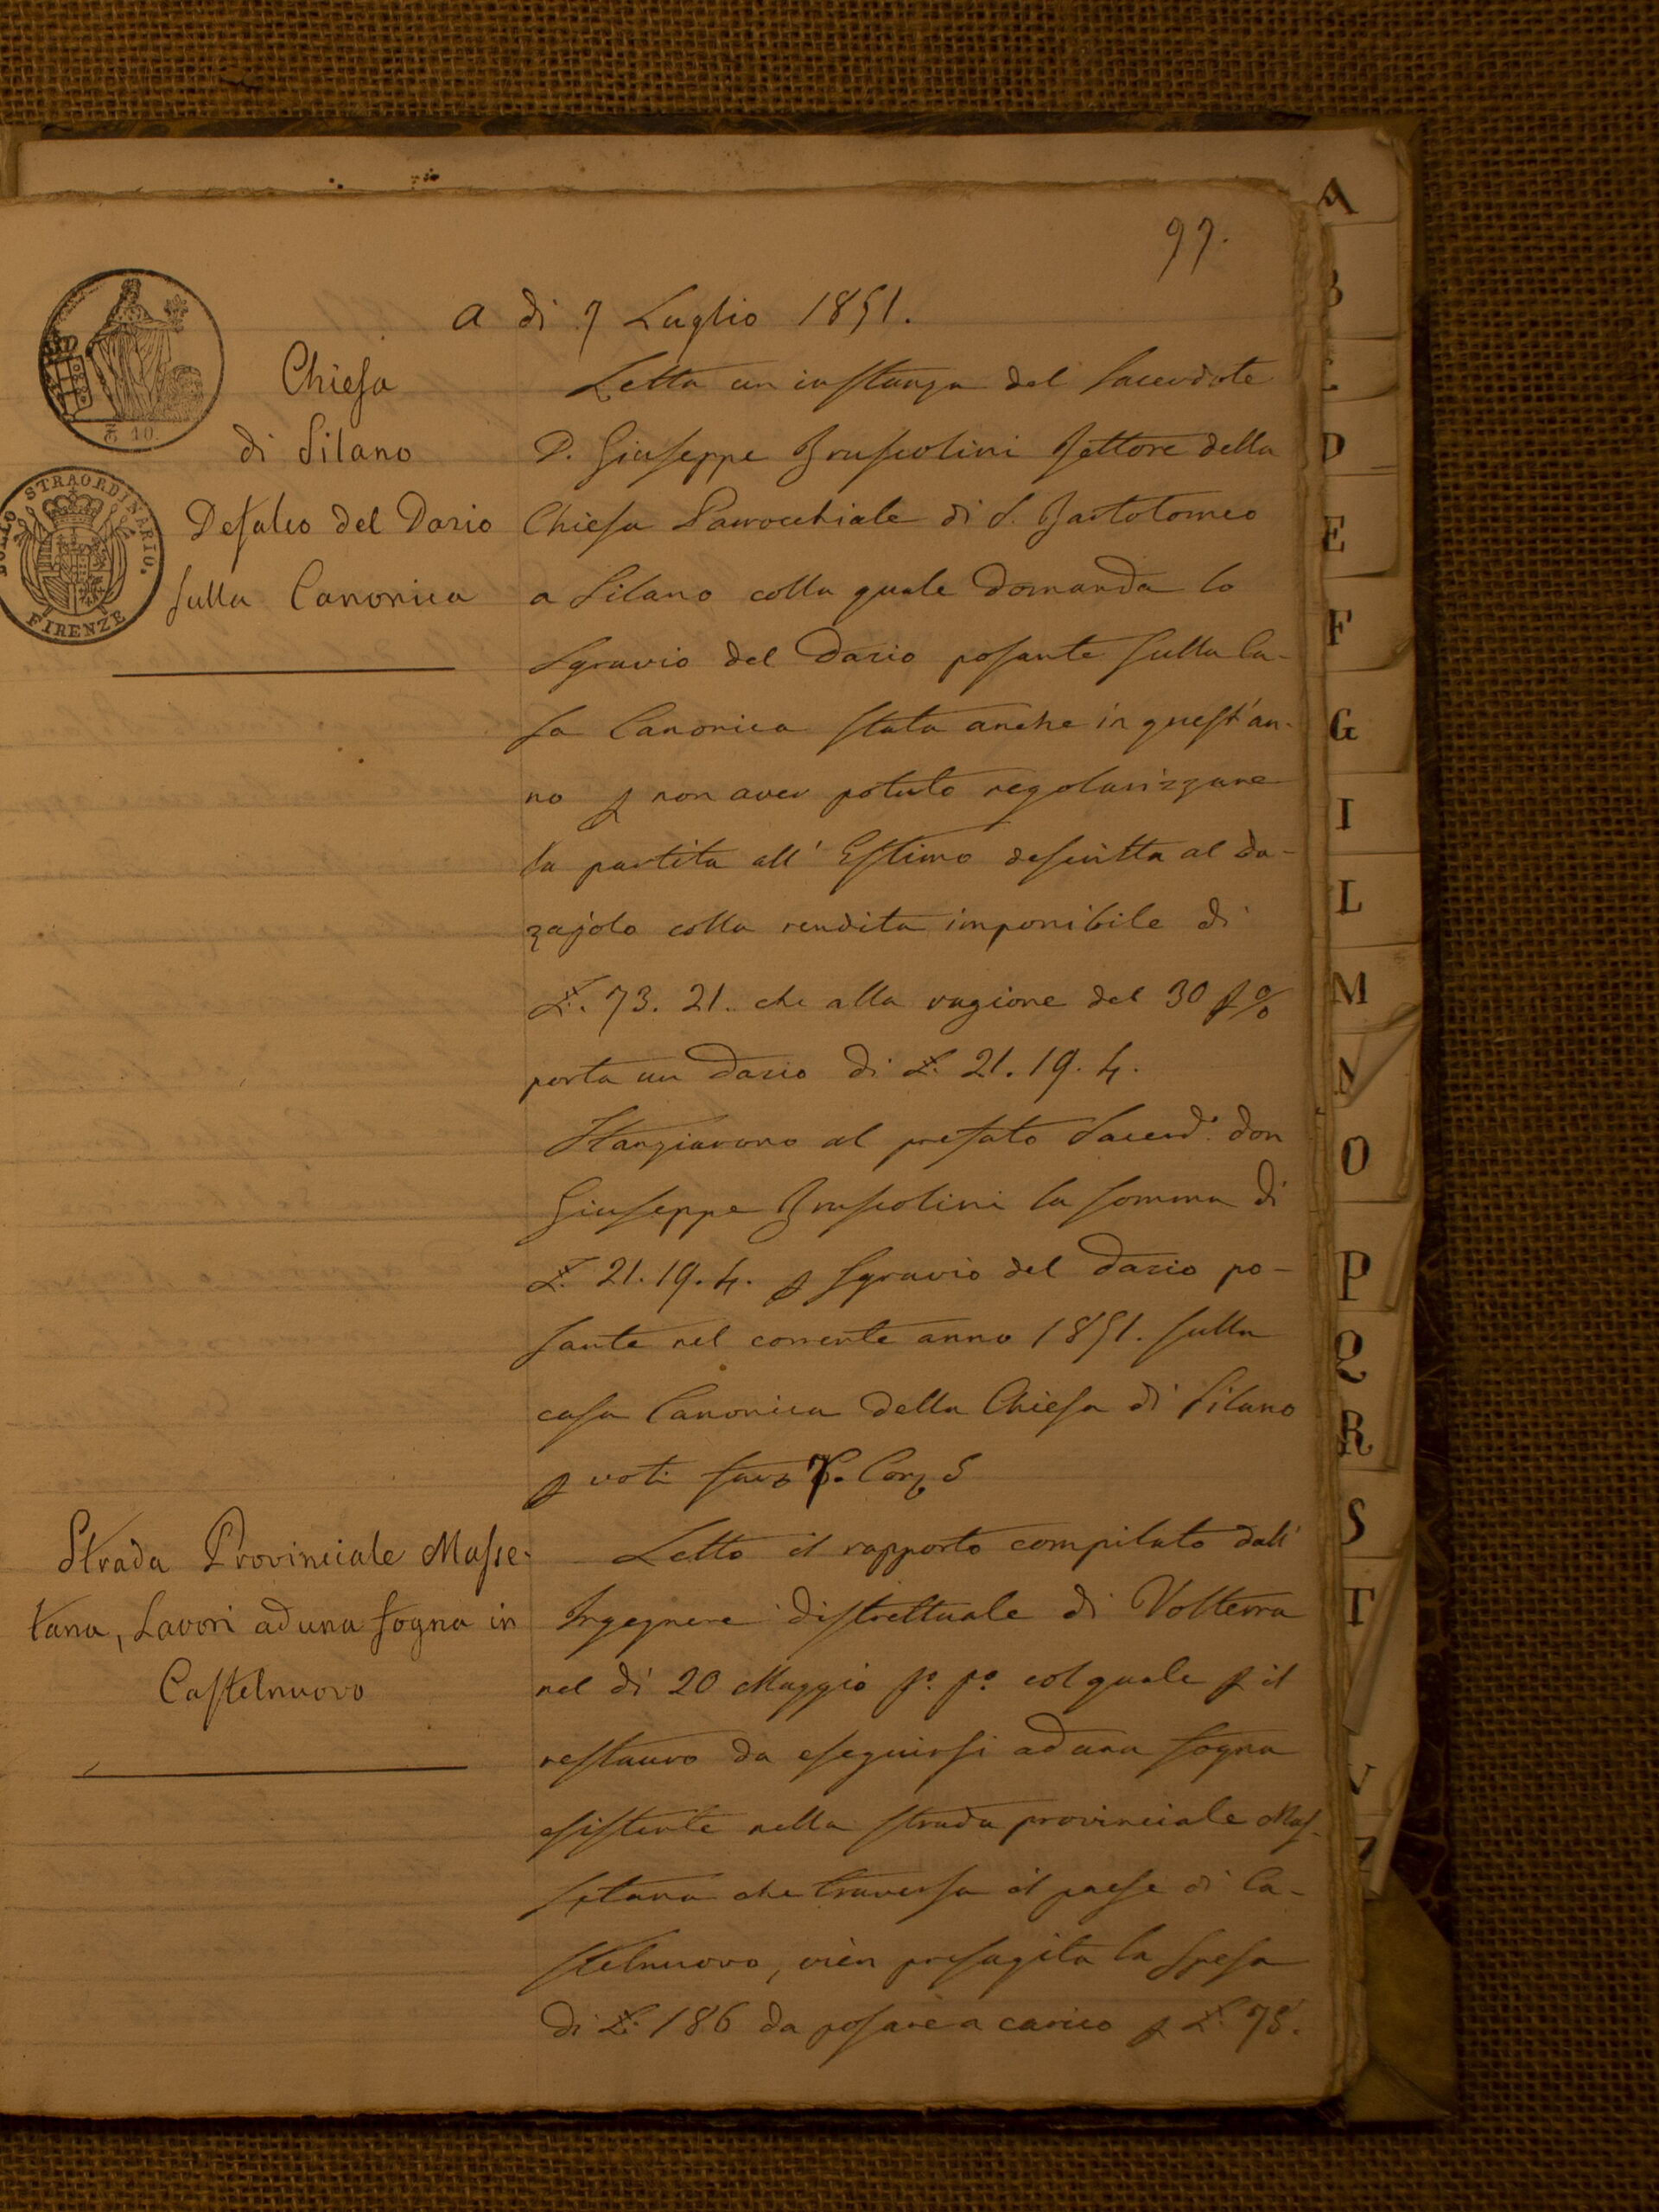 97.
a di 7 Luglio 1851.
Chiesa
di Silano
Defalco del Dazio
sulla Canonica
₸ 10.
BOLLO STRAORDINARIO.
FIRENZE
Letta un instanza del Sacerdote
D. Giuseppe Bruscolini Rettore della
Chiesa Parrocchiale di S. Bartolomeo
a Silano colla quale domanda lo
sgravio del Dazio posante sulla Ca-
sa Canonica stata anche in quest'an-
no p non aver potuto regolarizzare
la partita all' Estimo descritta al da-
zajolo colla rendita imponibile di
£. 73. 21. che alla ragione del 30 p %
porta un Dazio di £. 21. 19. 4.
Stanziarono al prefato Sacerd.e don
Giuseppe Bruscolini la somma di
£. 21. 19. 4. p sgravio del Dazio po-
sante nel corrente anno 1851. sulla
casa Canonica della Chiesa di Silano
p voti fav. 7. Con. 5
Strada Provinciale Masse-
tana, Lavori ad una fogna in
Castelnuovo
Letto il rapporto compilato dall'
Ingegnere distrettuale di Volterra
nel di 20 Maggio p.o p.o col quale p il
restauro da eseguirsi ad una fogna
esistente nella strada provinciale Mas-
setana che traversa il paese di Ca-
stelnuovo, vien presagita la spesa
di £. 186 da posare a carico p £. 78.
A
B
C
D
E
F
G
I
L
M
N
O
P
Q
R
S
T
V
Z